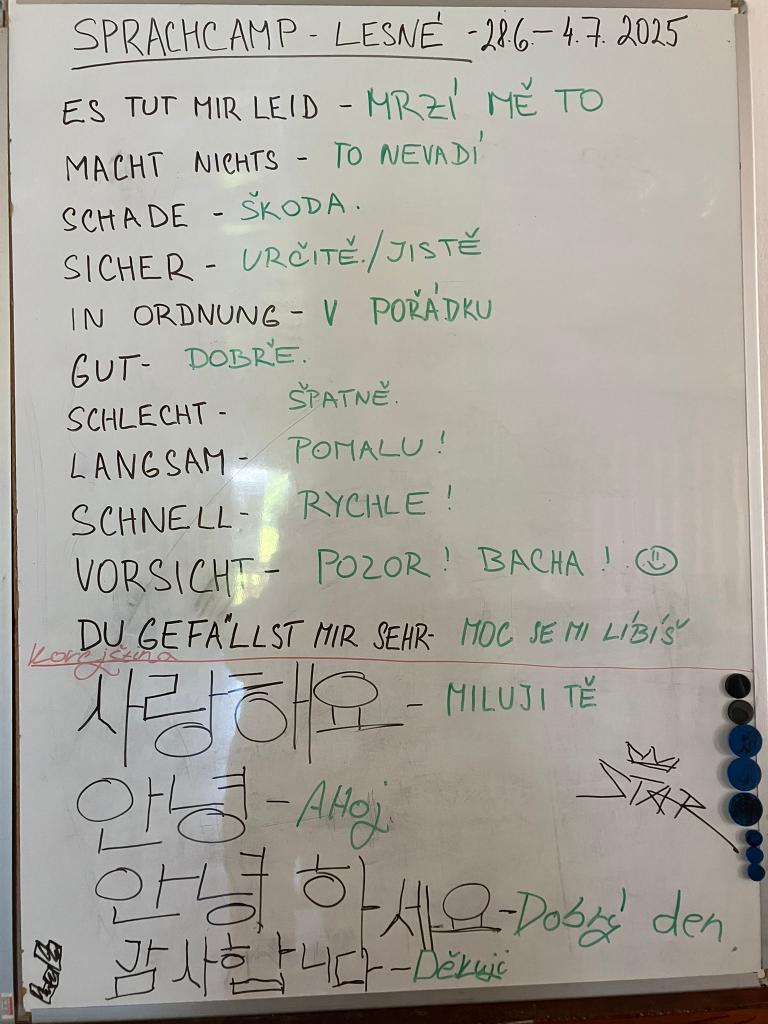 SPRACHCAMP - LESNÉ - 28.6. - 4.7. 2025
ES TUT MIR LEID - MRZÍ MĚ TO
MACHT NICHTS - TO NEVADÍ
SCHADE - ŠKODA.
SICHER - URČITĚ./JISTĚ
IN ORDNUNG - V POŘÁDKU
GUT - DOBŘE.
SCHLECHT - ŠPATNĚ.
LANGSAM - POMALU!
SCHNELL - RYCHLE!
VORSICHT - POZOR! BACHA! ☺
DU GEFÄLLST MIR SEHR - MOC SE MI LÍBÍŠ
Korejština
사랑해요 - MILUJI TĚ
안녕 - AHOJ
STAR
안녕하세요 - Dobrý den
감사합니다 - Děkuji